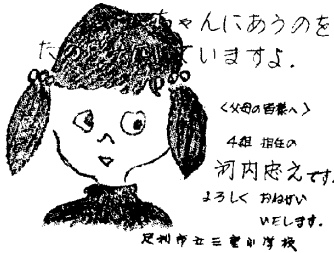 ちゃんにあうのを
ていますよ.
〈父母の皆様へ〉
4組 担任の
河内忠えです.
よろしく おねがい
いたします.
足利市立三重小学校